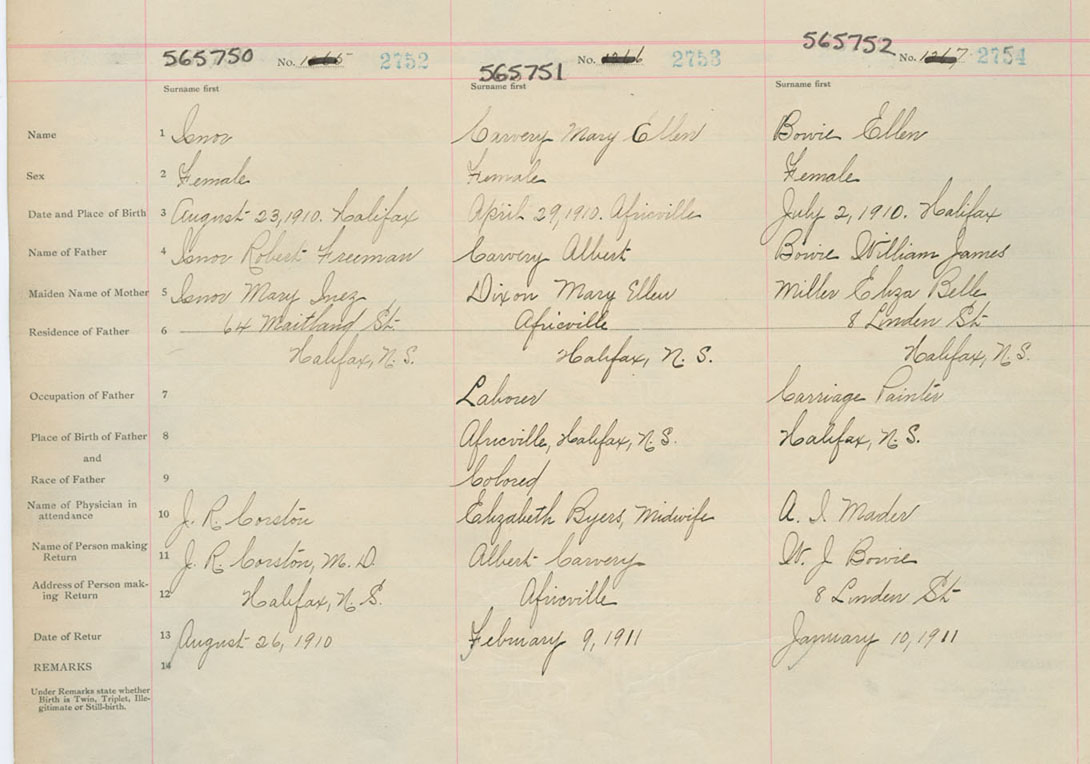 565750 No. 2752
565751 No. 2753
565752 No. 2754
Surname first Surname first Surname first
Name 1 Isnor Carvery Mary Ellen Bowie Ellen
Sex 2 Female Female Female
Date and Place of Birth 3 August 23, 1910. Halifax April 29, 1910. Africville July 2, 1910. Halifax
Name of Father 4 Isnor Robert Freeman Carvery Albert Bowie William James
Maiden Name of Mother 5 Isnor Mary Inez Dixon Mary Ellen Miller Eliza Belle
Residence of Father 6 64 Maitland St. Africville 8 Linden St
Halifax, N.S. Halifax, N.S. Halifax, N.S.
Occupation of Father 7 Laborer Carriage Painter
Place of Birth of Father 8 Africville, Halifax, N.S. Halifax, N.S.
and
Race of Father 9 Colored
Name of Physician in
attendance 10 J. R. Corston Elizabeth Byers, Midwife A. I. Mader
Name of Person making
Return 11 J. R. Corston, M.D. Albert Carvery W. J. Bowie
Address of Person mak-
ing Return 12 Halifax, N.S. Africville 8 Linden St
Date of Retur 13 August 26, 1910 February 9, 1911 January 10, 1911
REMARKS 14
Under Remarks state whether
Birth is Twin, Triplet, Ille-
gitimate or Still-birth.